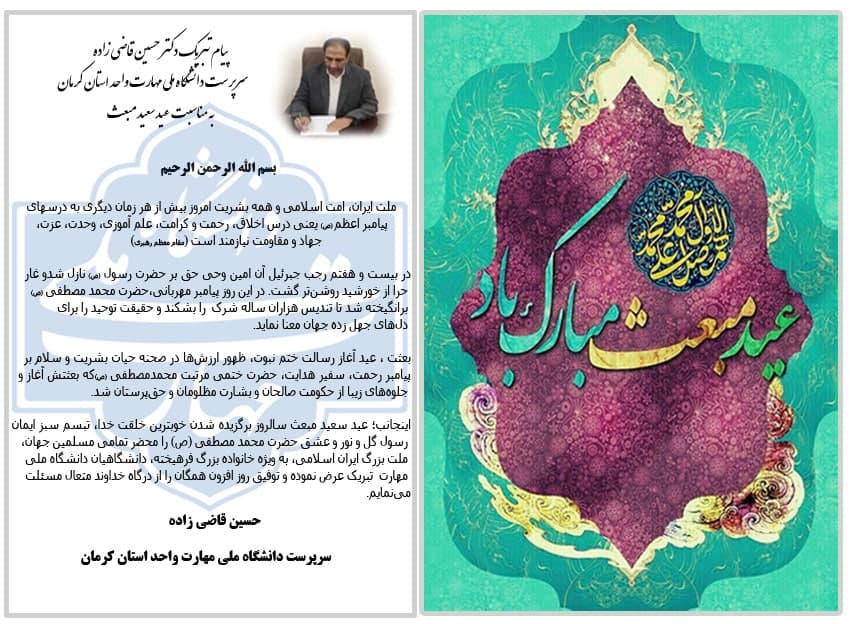 پیام تبریک دکتر حسین قاضی زاده
سرپرست دانشگاه ملی مهارت واحد استان کرمان
به مناسبت عید سعید مبعث
بسم الله الرحمن الرحیم
ملت ایران، امت اسلامی و همه بشریت امروز بیش از هر زمان دیگری به درسهای
پیامبر اعظم (ص) یعنی درس اخلاق، رحمت و کرامت، علم آموزی، وحدت، عزت،
جهاد و مقاومت نیازمند است (مقام معظم رهبری)
در بیست و هفتم رجب جبرئیل آن امین وحی حق بر حضرت رسول (ص) نازل شدو غار
حرا از خورشید روشن‌تر گشت. در این روز پیامبر مهربانی،حضرت محمد مصطفی (ص)
برانگیخته شد تا تندیس هزاران ساله شرک را بشکند و حقیقت توحید را برای
دل‌های جهل زده جهان معنا نماید.
بعثت ، عید آغاز رسالت ختم نبوت، ظهور ارزش‌ها در صحنه حیات بشریت و سلام بر
پیامبر رحمت، سفیر هدایت، حضرت ختمی مرتبت محمدمصطفی (ص)که بعثتش آغاز و
جلوه‌های زیبا از حکومت صالحان و بشارت مظلومان و حق‌پرستان شد.
اینجانب؛ عید سعید مبعث سالروز برگزیده شدن خوبترین خلقت خدا، تبسم سبز ایمان
رسول گل و نور و عشق حضرت محمد مصطفی (ص) را محضر تمامی مسلمین جهان،
ملت بزرگ ایران اسلامی، به ویژه خانواده بزرگ فرهیخته، دانشگاهیان دانشگاه ملی
مهارت تبریک عرض نموده و توفیق روز افزون همگان را از درگاه خداوند متعال مسئلت
می‌نمایم.
حسین قاضی زاده
سرپرست دانشگاه ملی مهارت واحد استان کرمان
عید مبعث مبارک باد